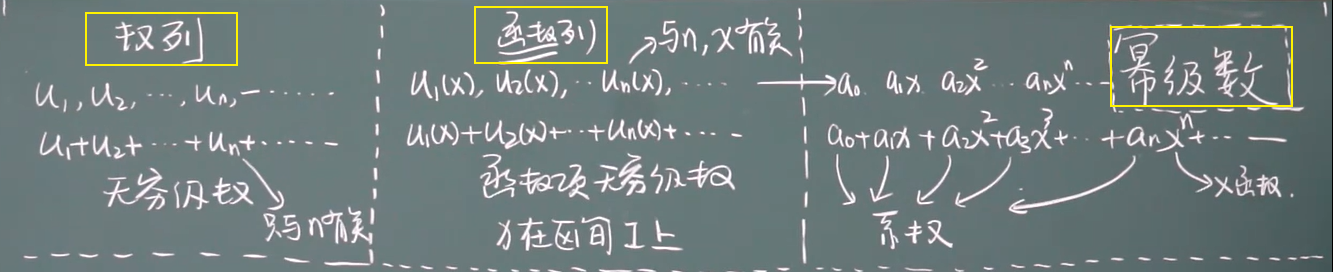 数列
u₁, u₂, ⋯, uₙ, ⋯⋯
u₁+u₂+⋯+uₙ+⋯⋯
无穷级数
只与n有关
函数列
与n,x有关
u₁(x), u₂(x), ⋯ uₙ(x), ⋯⋯
u₁(x)+u₂(x)+⋯+uₙ(x)+⋯⋯
函数项无穷级数
x在区间I上
幂级数
a₀ a₁x a₂x² ⋯ aₙxⁿ ⋯
a₀+a₁x+a₂x²+a₃x³+⋯+aₙxⁿ+⋯
x函数.
系数